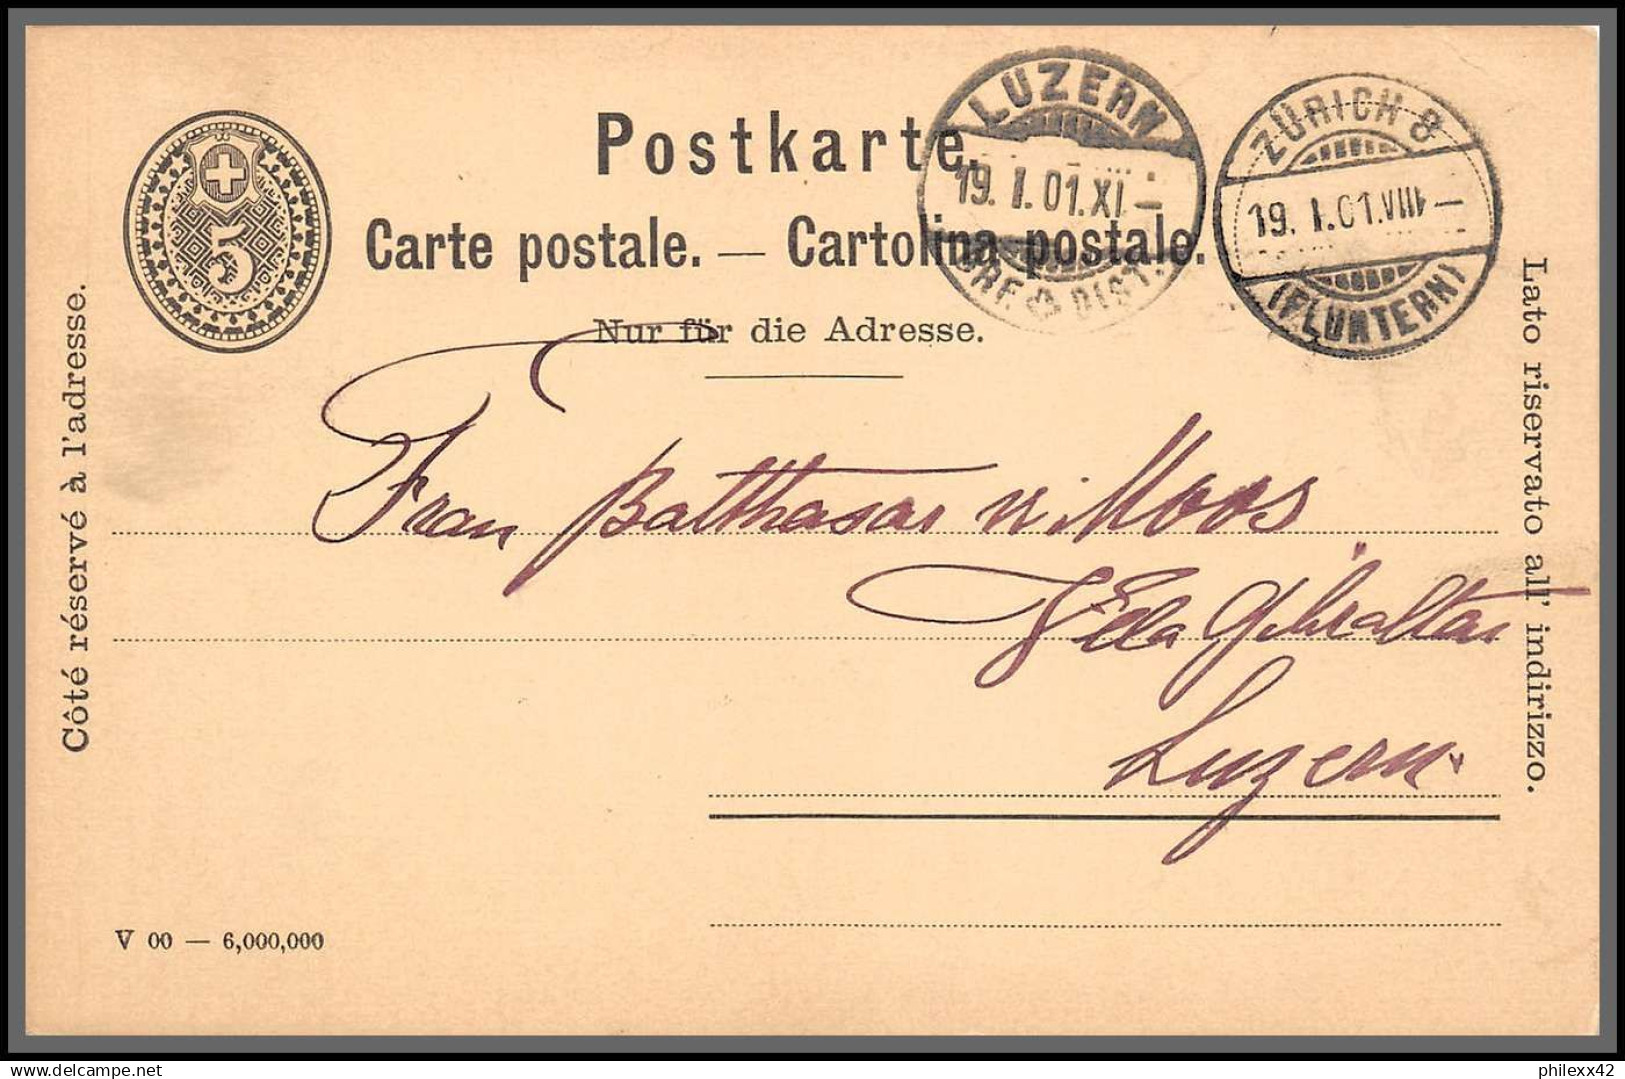 5
Postkarte.
Carte postale. — Cartolina postale.
Nur für die Adresse.
Côté réservé à l'adresse.
Lato riservato all' indirizzo.
LUZERN
19. I. 01. XI —
BRF. DIST.
ZÜRICH 8
19. I. 01. VIII —
(FLUNTERN)
Frau Balthasar v. Moos
Gibraltar
Luzern.
V 00 — 6,000,000
philexx42